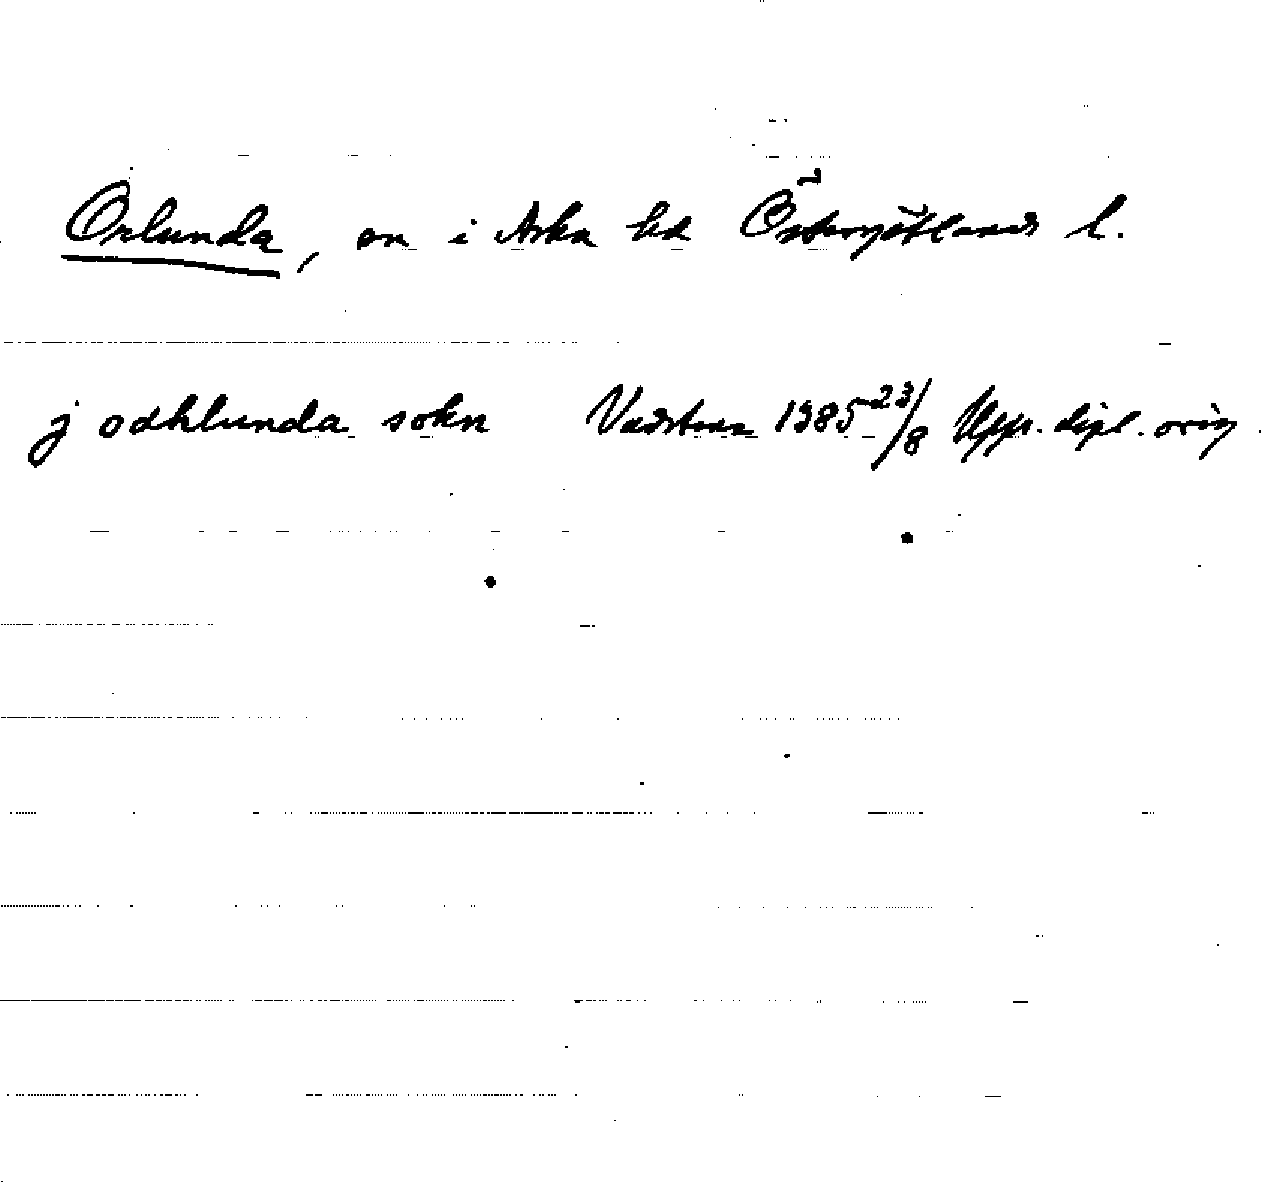 Orlunda, sn i Aska hd Östergötlands l.
j odhlunda sokn Vadstena 1385 23/8 Upps. dipl. orig